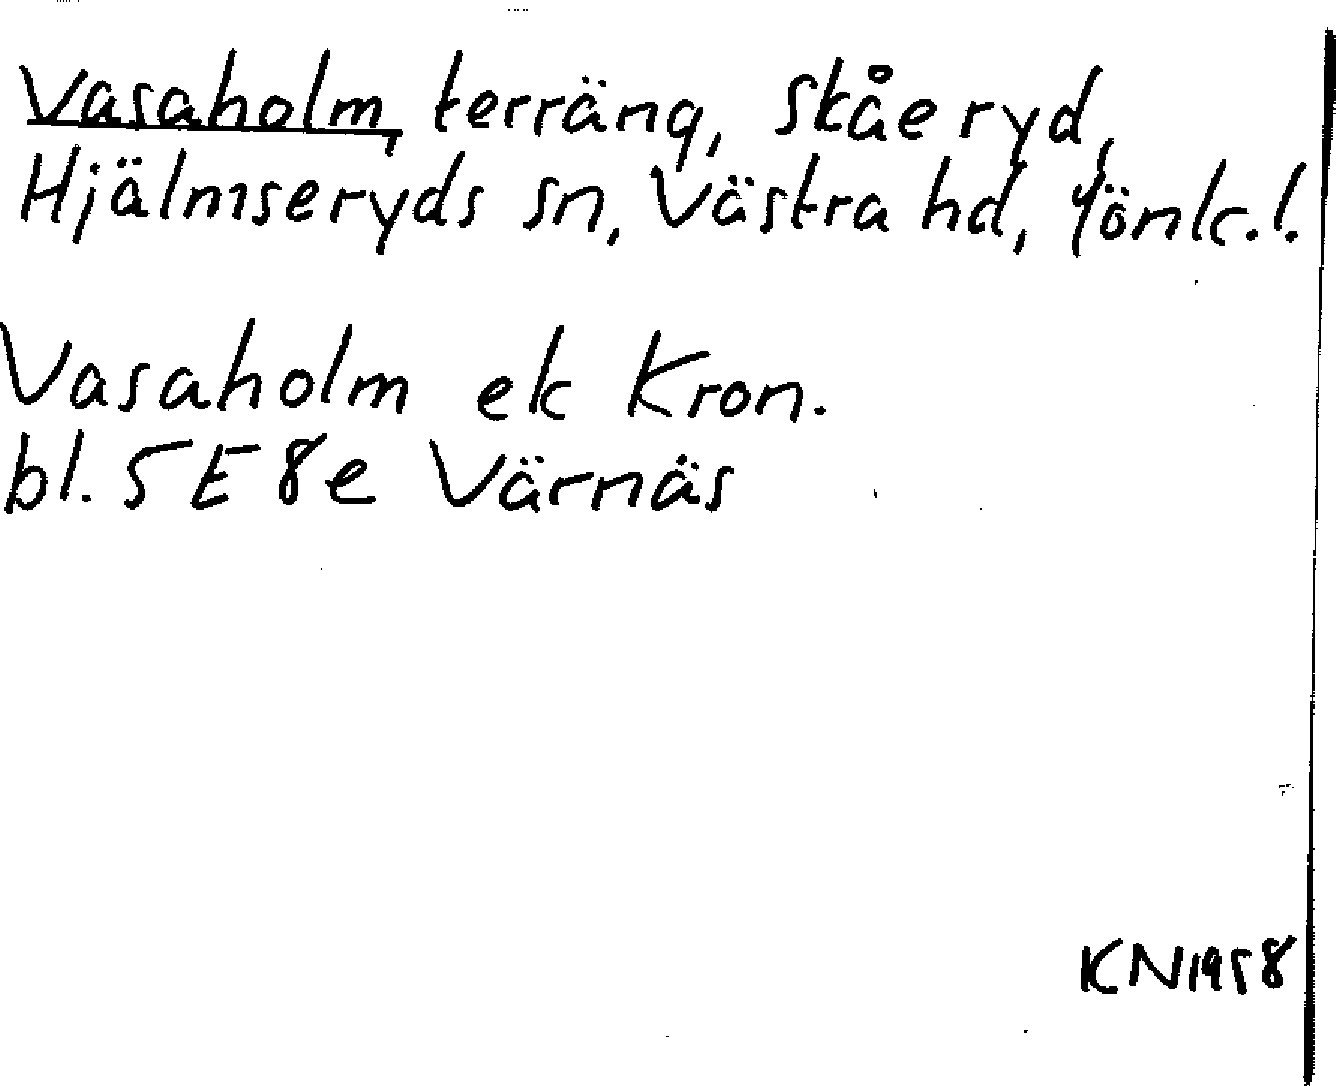 Vasaholm, terräng, Skåeryd,
Hjälmseryds sn, Västra hd, Jönk. l.
Vasaholm ek Kron.
bl. 5E 8e Värnäs
KN 1958